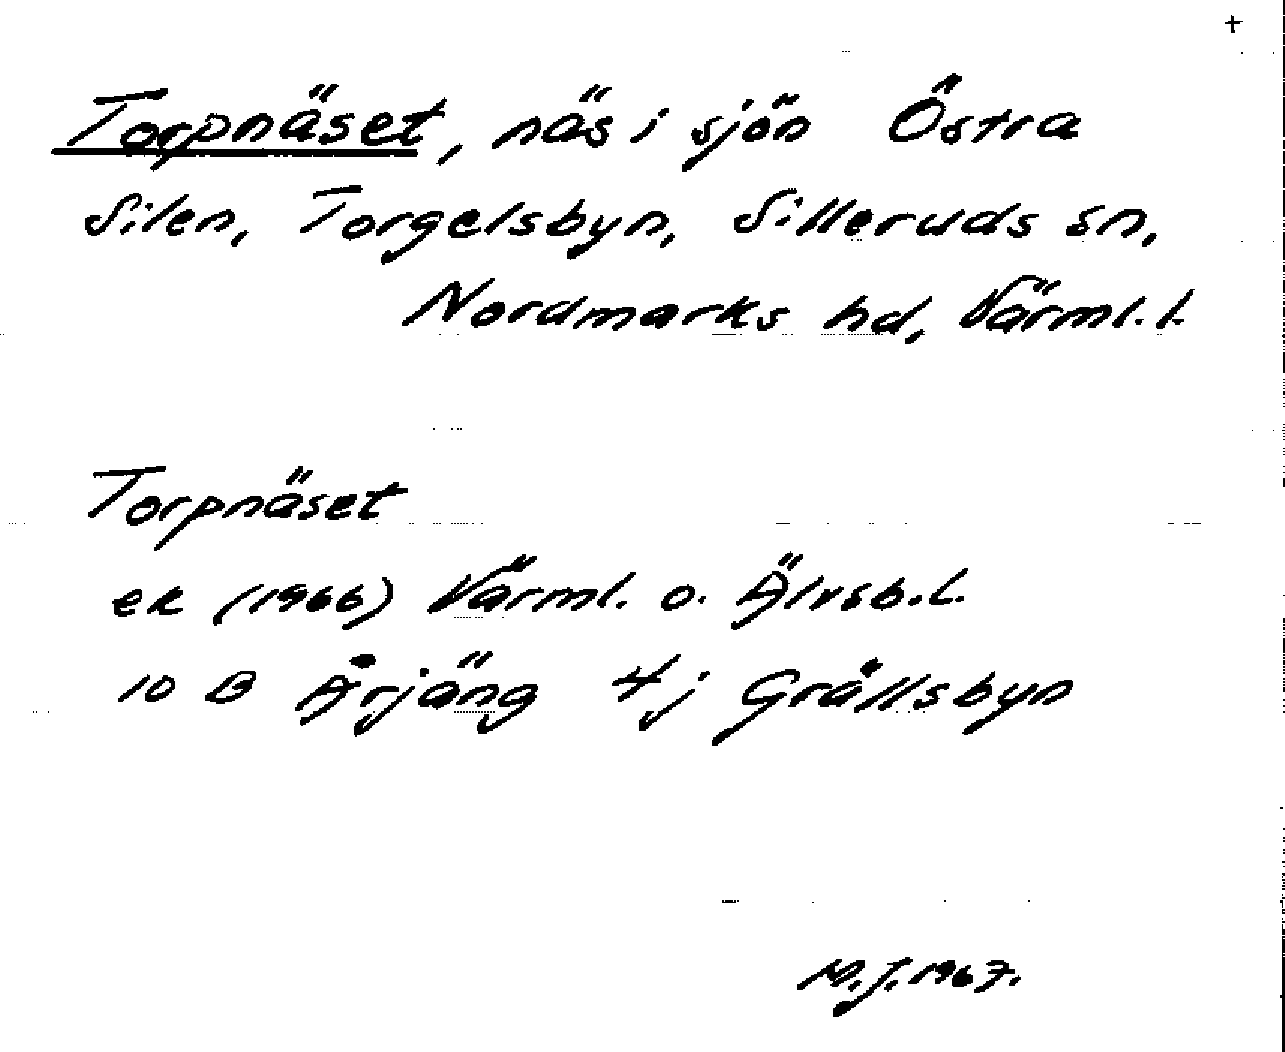 +
Torpnäset, näs i sjön Östra
Silen, Torgelsbyn, Silleruds sn,
Nordmarks hd, Värml. l.
Torpnäset
ek (1966) Värml. o. Älvsb. L.
10 B Årjäng 4j Grållsbyn
M.J. 1967.